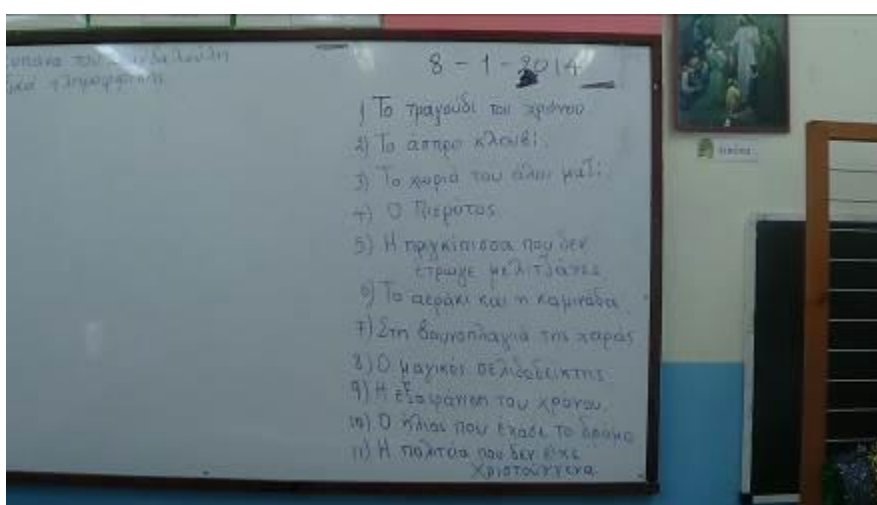 του
πληροφόρηση
8 - 1 - 2014
1) Το τραγούδι του χρόνου.
2) Το άσπρο κλουβί.
3) Το χωριό του όλοι μαζί.
4) Ο Πιερότος
5) Η πριγκίπισσα που δεν
έτρωγε μελιτζάνες
6) Το αεράκι και η καμινάδα
7) Στη βουνοπλαγιά της χαράς
8) Ο μαγικός σελιδοδείκτης
9) Η εξαφάνιση του χρόνου.
10) Ο ήλιος που έχασε το δρόμο
11) Η πολιτεία που δεν είχε
Χριστούγεννα
εικόνα